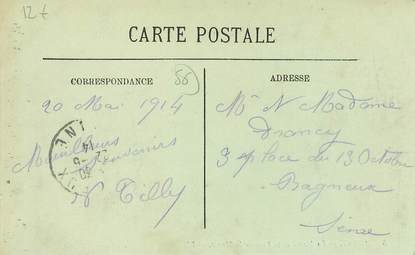 12 €
CARTE POSTALE
CORRESPONDANCE
88
ADRESSE
20 Mai 1914
Meilleurs
Souvenirs
N Tilly
Mr N Madame
Drancy
3 place du 13 Octobre
Bagneux
Seine